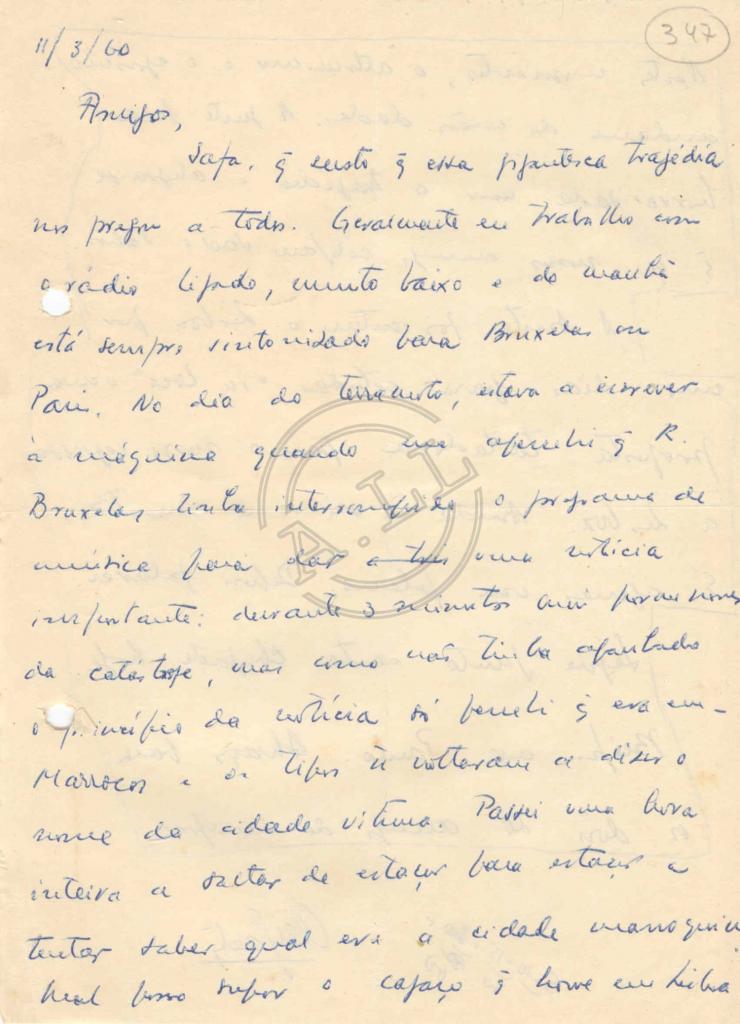 347
11/3/60
Amigos,
Safa, q̃ susto q̃ essa gigantesca tragédia
nos pregou a todos. Geralmente eu trabalho com
o rádio ligado, muito baixo e de manhã
está sempre sintonizado para Bruxelas ou
Paris. No dia do terramoto, estava a escrever
à máquina quando me apercebi q̃ R.
Bruxelas tinha interrompido o programa de
música para dar uma notícia
importante: durante 3 minutos ouvi pormenores
da catástrofe, mas como não tinha apanhado
o princípio da notícia só percebi q̃ era em
Marrocos e os tipos ñ voltaram a dizer o
nome da cidade vítima. Passei uma hora
inteira a saltar de estação para estação a
tentar saber qual era a cidade marroquina
Mal posso supor o cagaço q̃ houve em Lisboa
A.LL